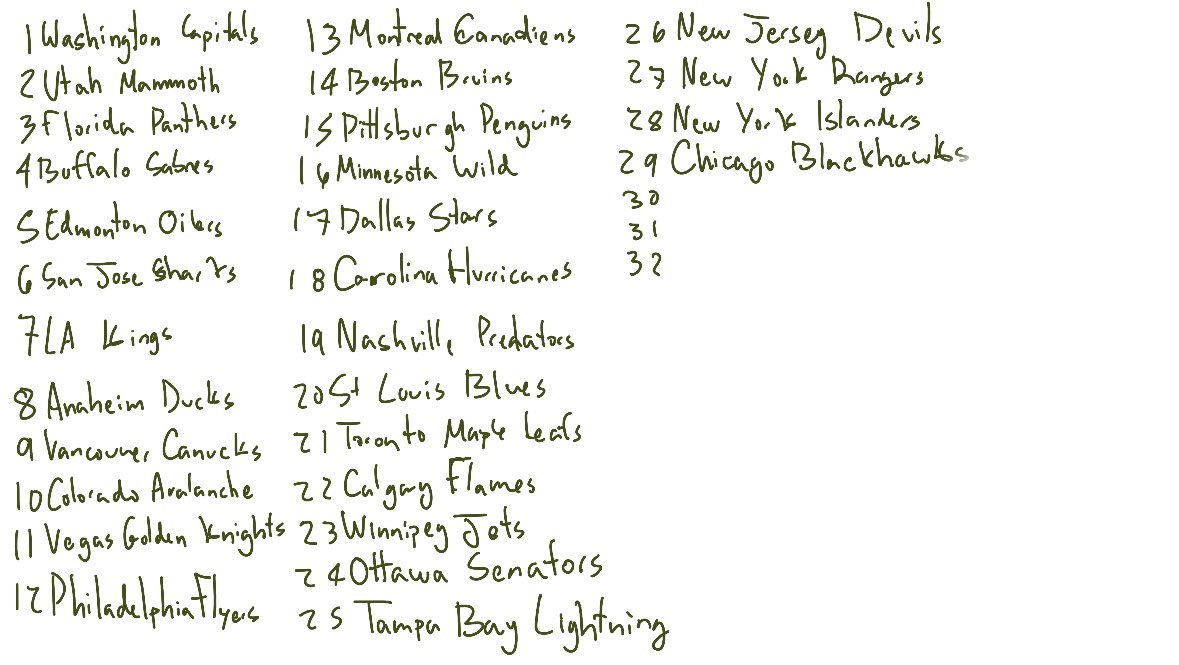 1 Washington Capitals
2 Utah Mammoth
3 Florida Panthers
4 Buffalo Sabres
5 Edmonton Oilers
6 San Jose Sharks
7 LA Kings
8 Anaheim Ducks
9 Vancouver Canucks
10 Colorado Avalanche
11 Vegas Golden Knights
12 Philadelphia Flyers
13 Montreal Canadiens
14 Boston Bruins
15 Pittsburgh Penguins
16 Minnesota Wild
17 Dallas Stars
18 Carolina Hurricanes
19 Nashville Predators
20 St Louis Blues
21 Toronto Maple Leafs
22 Calgary Flames
23 Winnipeg Jets
24 Ottawa Senators
25 Tampa Bay Lightning
26 New Jersey Devils
27 New York Rangers
28 New York Islanders
29 Chicago Blackhawks
30
31
32